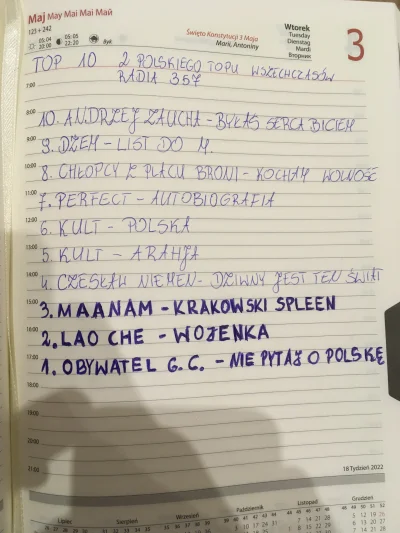 Maj May Mai Mai Май
123 + 242
05:04 20:00
05:05 22:20
Byk
Święto Konstytucji 3 Maja
Marii, Antoniny
Wtorek
Tuesday
Dienstag
Mardi
Вторник
3
TOP 10 Z POLSKIEGO TOPU WSZECHCZASÓW
RADIA 357
7:00
8:00
10. ANDRZEJ ZAUCHA - BYŁAŚ SERCA BICIEM
9:00
9. DŻEM - LIST DO M.
10:00
8. CHŁOPCY Z PLACU BRONI - KOCHAM WOLNOŚĆ
11:00
7. PERFECT - AUTOBIOGRAFIA
12:00
6. KULT - POLSKA
13:00
5. KULT - ARAHJA
14:00
4. CZESŁAW NIEMEN - DZIWNY JEST TEN ŚWIAT
15:00
3. MAANAM - KRAKOWSKI SPLEEN
16:00
2. LAO CHE - WOJENKA
17:00
1. OBYWATEL G.C. - NIE PYTAJ O POLSKĘ
18:00
19:00
20:00
21:00
18 Tydzień 2022
Lipiec Sierpień Wrzesień Październik Listopad Grudzień